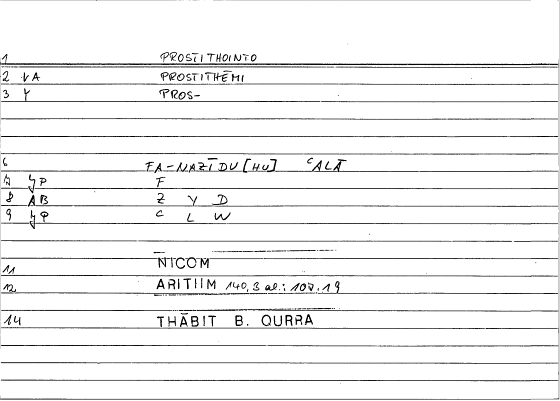 1 PROSTITHOINTO
2 VA PROSTITHĒMI
3 Y PROS-
6 FA-NAZĪDU[HU] ᶜALĀ
7 YP F
8 AB Z Y D
9 YP C L W
11 NICOM
12 ARITIIM 140,3 al.: 107.19
14 THĀBIT B. QURRA